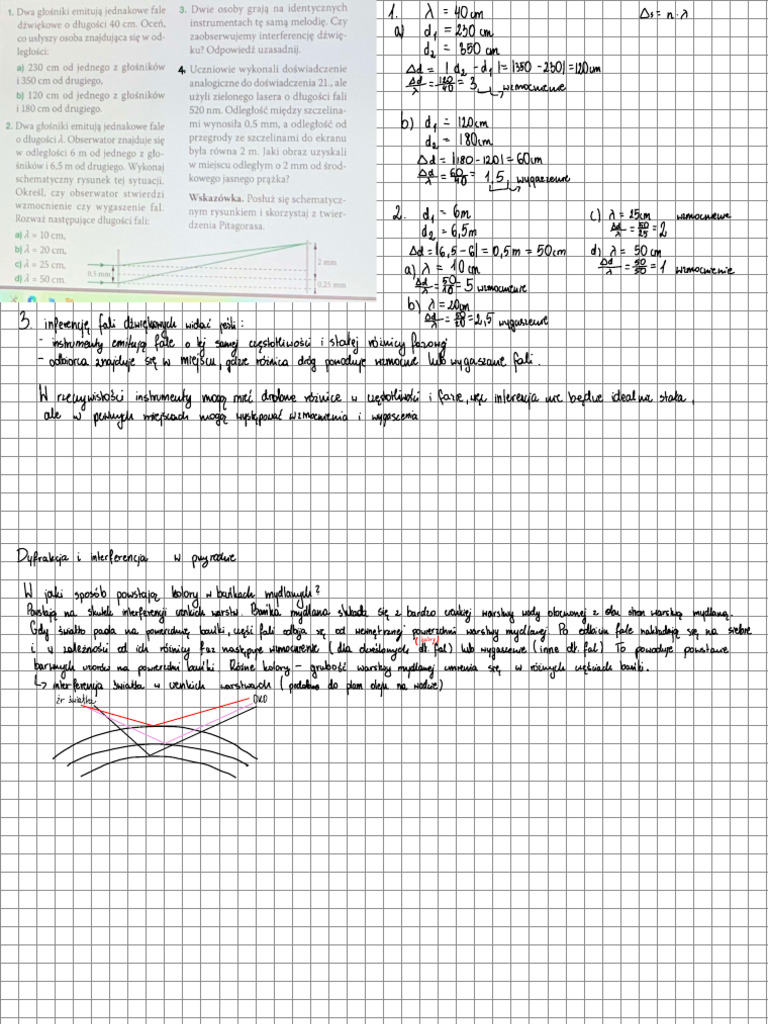 1. Dwa głośniki emitują jednakowe fale
dźwiękowe o długości 40 cm. Oceń,
co usłyszy osoba znajdująca się w od-
ległości:
a) 230 cm od jednego z głośników
i 350 cm od drugiego,
b) 120 cm od jednego z głośników
i 180 cm od drugiego.
2. Dwa głośniki emitują jednakowe fale
o długości λ. Obserwator znajduje się
w odległości 6 m od jednego z gło-
śników i 6,5 m od drugiego. Wykonaj
schematyczny rysunek tej sytuacji.
Określ, czy obserwator stwierdzi
wzmocnienie czy wygaszenie fal.
Rozważ następujące długości fali:
a) λ = 10 cm,
b) λ = 20 cm,
c) λ = 25 cm,
d) λ = 50 cm.
3. Dwie osoby grają na identycznych
instrumentach tę samą melodię. Czy
zaobserwujemy interferencję dźwię-
ku? Odpowiedź uzasadnij.
4. Uczniowie wykonali doświadczenie
analogiczne do doświadczenia 21., ale
użyli zielonego lasera o długości fali
520 nm. Odległość między szczelina-
mi wynosiła 0,5 mm, a odległość od
przegrody ze szczelinami do ekranu
była równa 2 m. Jaki obraz uzyskali
w miejscu odległym o 2 mm od środ-
kowego jasnego prążka?
Wskazówka. Posłuż się schematycz-
nym rysunkiem i skorzystaj z twier-
dzenia Pitagorasa.
0,5 mm
2 mm
0,25 mm
1. λ = 40cm
Δs = n·λ
a) d₁ = 230 cm
d₂ = 350 cm
Δd = |d₂ - d₁| = |350 - 230| = 120cm
Δd/λ = 120/40 = 3 wzmocnienie
b) d₁ = 120cm
d₂ = 180cm
Δd = |180 - 120| = 60cm
Δd/λ = 60/40 = 1,5 wygaszenie
2. d₁ = 6m
d₂ = 6,5m
Δd = |6,5 - 6| = 0,5m = 50cm
a) λ = 10cm
Δd/λ = 50/10 = 5 wzmocnienie
b) λ = 20cm
Δd/λ = 50/20 = 2,5 wygaszenie
c) λ = 25cm wzmocnienie
Δd/λ = 50/25 = 2
d) λ = 50cm
Δd/λ = 50/50 = 1 wzmocnienie
3. inferencję fali dźwiękowych widać jeśli:
- instrumenty emitują fale o tej samej częstotliwości i stałej różnicy fazowej
- odbiorca znajduje się w miejscu, gdzie różnica dróg powoduje wzmocnie lub wygaszanie fali.
W rzeczywistości instrumenty mogą mieć drobne różnice w częstotliwości i fazie, więc inferencja nie będzie idealna stała,
ale w pewnych miejscach mogą występować wzmocnienia i wygaszenia
Dyfrakcja i interferencja w przyrodzie
W jaki sposób powstają kolory w bańkach mydlanych?
Powstają na skutek interferencji cienkich warstw. Bańka mydlana składa się z bardzo cienkiej warstwy wody otoczonej z obu stron warstwą mydlaną.
Gdy światło pada na powierzchnię bańki, część fali odbija się od wewnętrznej powierzchni warstwy mydlanej Po odbiciu fale nakładają się na siebie
i w zależności od ich różnicy faz następuje wzmocnienie (dla określonych dł. fal) lub wygaszenie (inne dł. fal) To powoduje powstawanie
barwnych wzorów na powierzchni bańki Różne kolory – grubość warstwy mydlanej zmienia się w różnych częściach bańki.
↳ interferencja światła w cienkich warstwach (podobno do plam oleju na wodzie)
źr światła
OKO